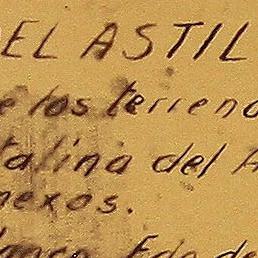 EL ASTIL
e los terreno
talina del A
nexos.
lanco, Edo de